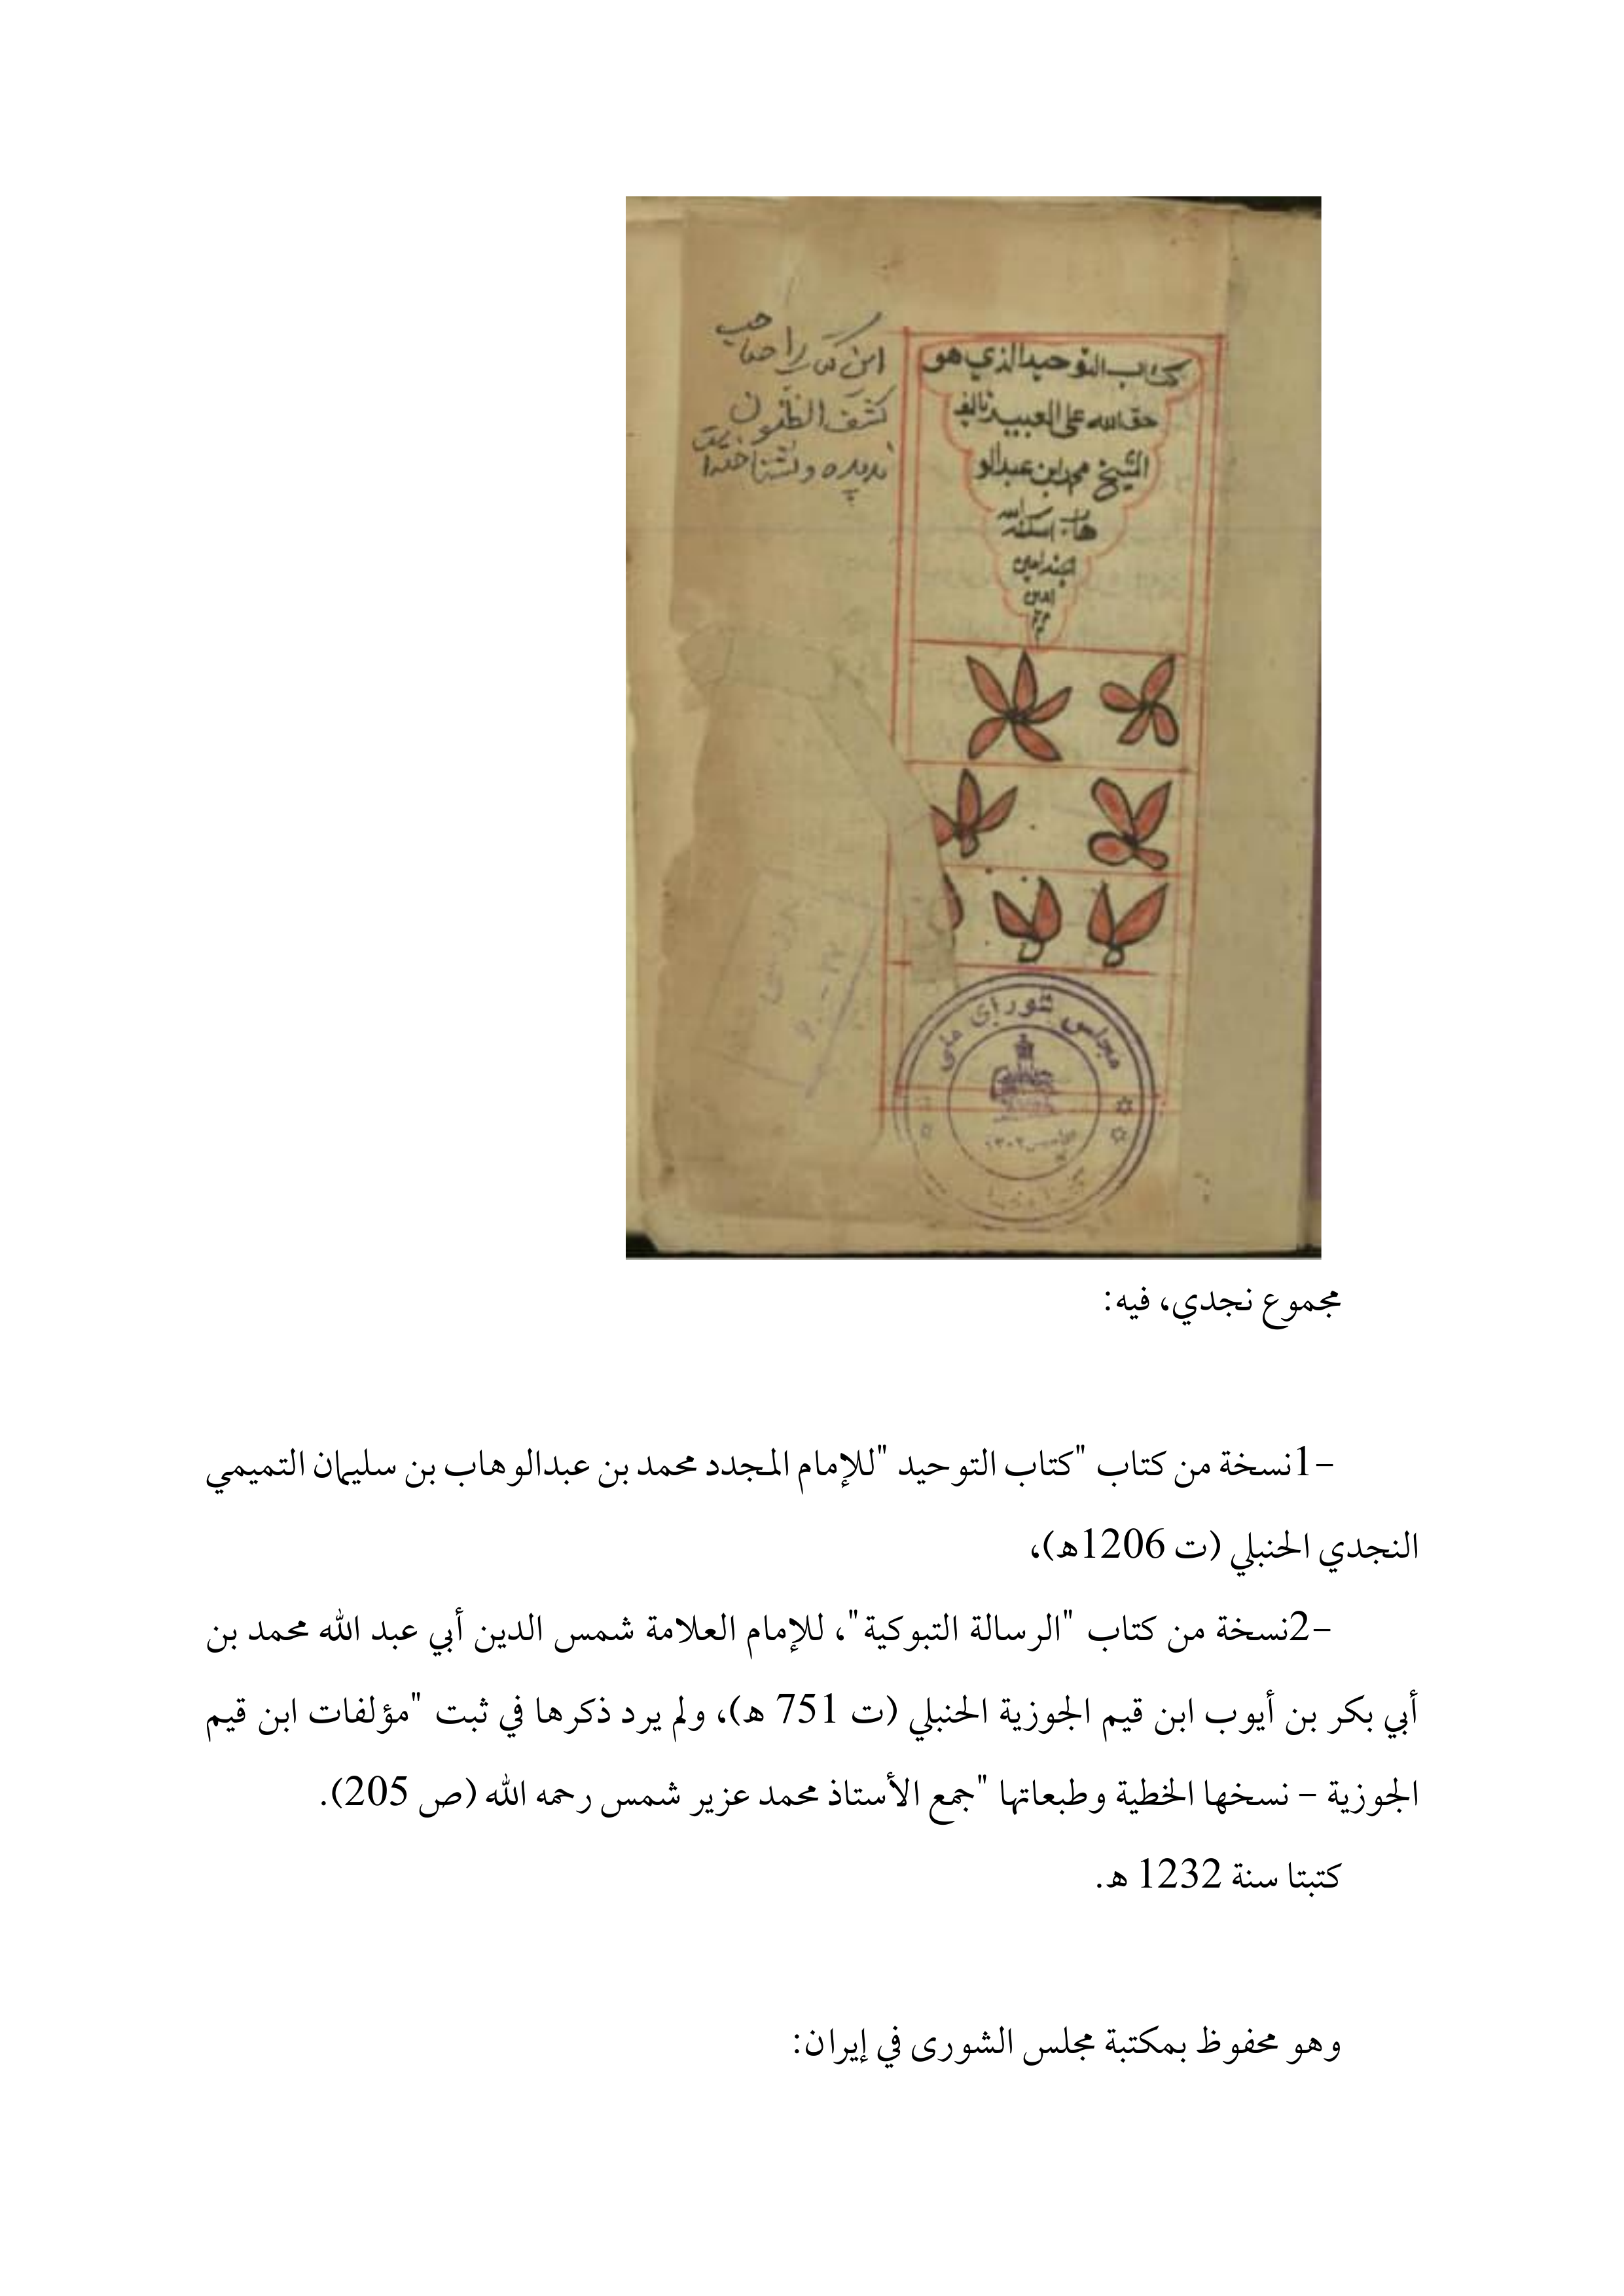 كتاب التوحيد الذي هو
حق الله على العبيد تاليف
الشيخ محمد ابن عبد الو
هاب اسكنه الله
الجنه امين
امين
اين كتاب را صاحب
كشف الظنون
نديده ونشناخته
مجلس شوراى ملى
١٣٠٢
مجموع نجدي، فيه:
-1نسخة من كتاب "كتاب التوحيد "للإمام المجدد محمد بن عبدالوهاب بن سليمان التميمي
النجدي الحنبلي (ت 1206ه)،
-2نسخة من كتاب "الرسالة التبوكية"، للإمام العلامة شمس الدين أبي عبد الله محمد بن
أبي بكر بن أيوب ابن قيم الجوزية الحنبلي (ت 751 ه)، ولم يرد ذكرها في ثبت "مؤلفات ابن قيم
الجوزية – نسخها الخطية وطبعاتها "جمع الأستاذ محمد عزير شمس رحمه الله (ص 205).
كتبتا سنة 1232 ه.
وهو محفوظ بمكتبة مجلس الشورى في إيران: